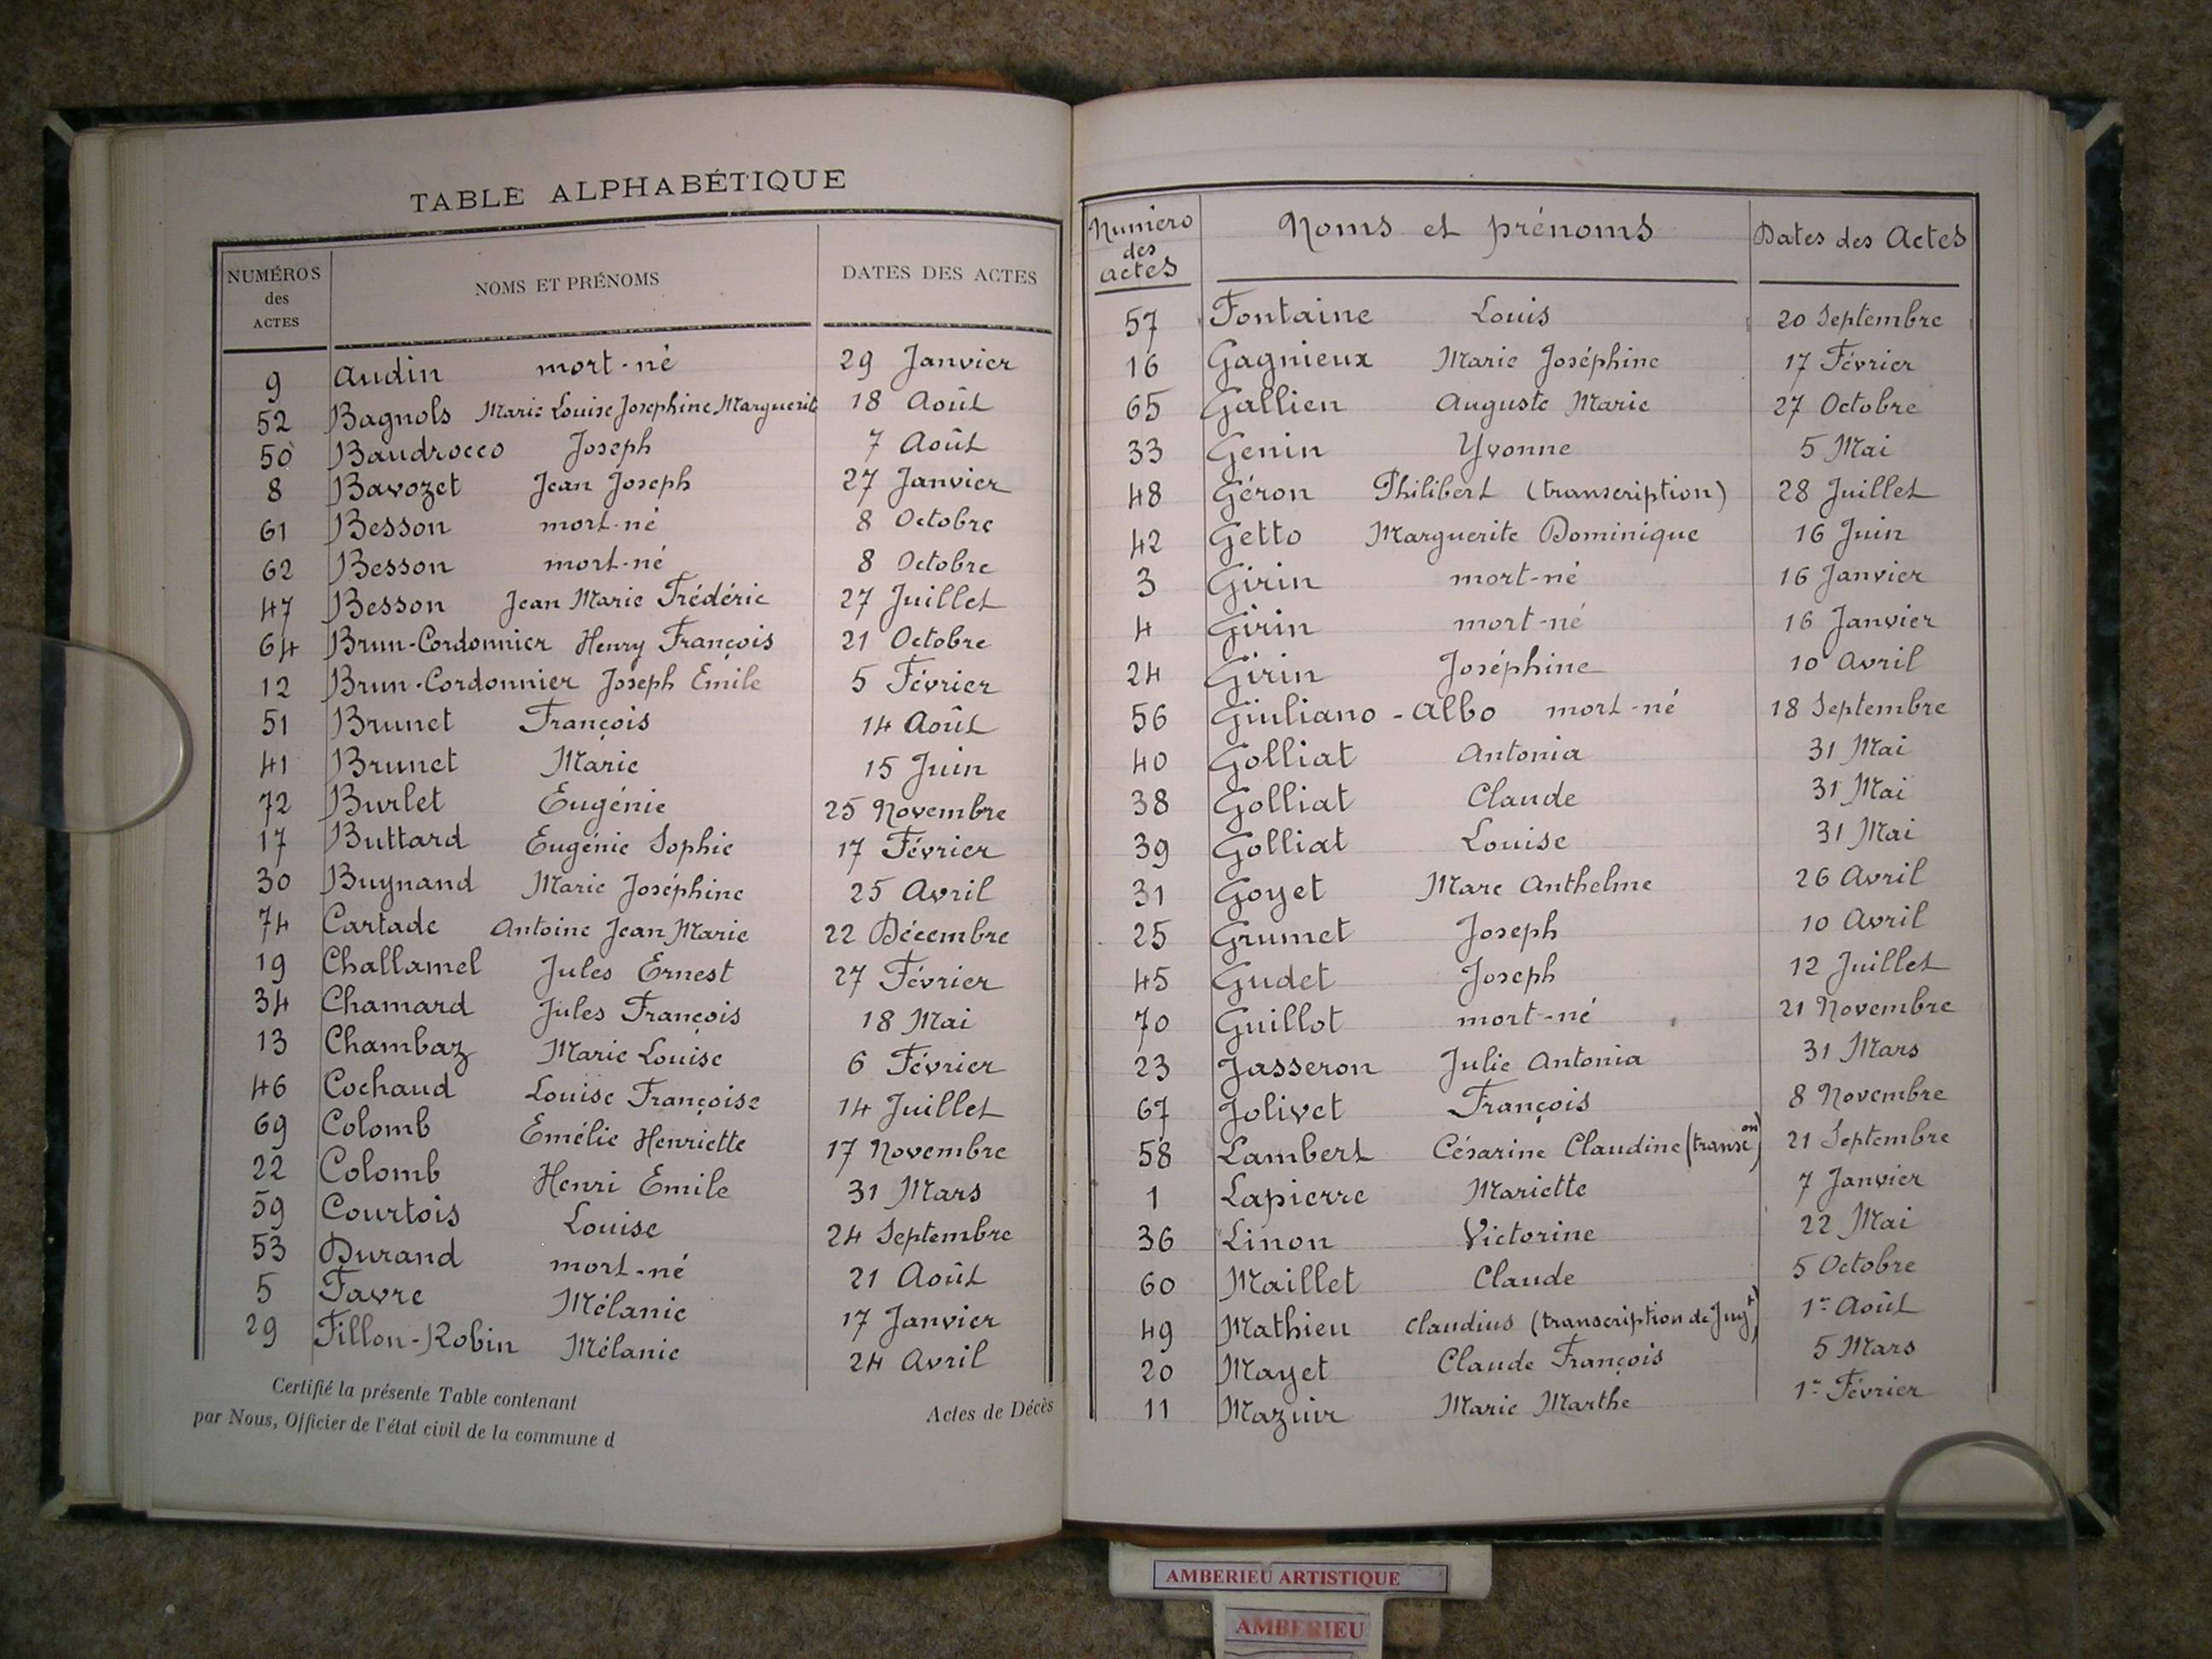 TABLE ALPHABÉTIQUE
NUMÉROS des ACTES NOMS ET PRÉNOMS DATES DES ACTES
9 Audin mort-né 29 Janvier
52 Bagnols Marie Louise Josephine Marguerite 18 Août
50 Baudrocco Joseph 7 Août
8 Bavozet Jean Joseph 27 Janvier
61 Besson mort-né 8 Octobre
62 Besson mort-né 8 Octobre
47 Besson Jean Marie Frédéric 27 Juillet
64 Brun-Cordonnier Henry François 21 Octobre
12 Brun-Cordonnier Joseph Emile 5 Février
51 Brunet François 14 Août
41 Brunet Marie 15 Juin
72 Burlet Eugénie 25 Novembre
17 Buttard Eugénie Sophie 17 Février
30 Buynand Marie Joséphine 25 Avril
74 Cartade Antoine Jean Marie 22 Décembre
19 Challamel Jules Ernest 27 Février
34 Chamard Jules François 18 Mai
13 Chambaz Marie Louise 6 Février
46 Cochaud Louise Françoise 14 Juillet
69 Colomb Emélie Henriette 17 Novembre
22 Colomb Henri Emile 31 Mars
59 Courtois Louise 24 Septembre
53 Durand mort-né 21 Août
5 Favre Mélanie 17 Janvier
29 Fillon-Robin Mélanie 24 Avril
Certifié la présente Table contenant Actes de Décès
par Nous, Officier de l'état civil de la commune d
Numéro des actes Noms et prénoms Dates des Actes
57 Fontaine Louis 20 Septembre
16 Gagnieux Marie Joséphine 17 Février
65 Gallien Auguste Marie 27 Octobre
33 Genin Yvonne 5 Mai
48 Géron Philibert (transcription) 28 Juillet
42 Getto Marguerite Dominique 16 Juin
3 Girin mort-né 16 Janvier
4 Girin mort-né 16 Janvier
24 Girin Joséphine 10 Avril
56 Giuliano-Albo mort-né 18 Septembre
40 Golliat Antonia 31 Mai
38 Golliat Claude 31 Mai
39 Golliat Louise 31 Mai
31 Goyet Marc Anthelme 26 Avril
25 Grumet Joseph 10 Avril
45 Gudet Joseph 12 Juillet
70 Guillot mort-né 21 Novembre
23 Jasseron Julie Antonia 31 Mars
67 Jolivet François 8 Novembre
58 Lambert Césarine Claudine (transc^on) 21 Septembre
1 Lapierre Mariette 7 Janvier
36 Linon Victorine 22 Mai
60 Maillet Claude 5 Octobre
49 Mathieu Claudius (transcription de Jug^t) 1er Août
20 Mayet Claude François 5 Mars
11 Mazuir Marie Marthe 1er Février
AMBERIEU ARTISTIQUE
AMBERIEU